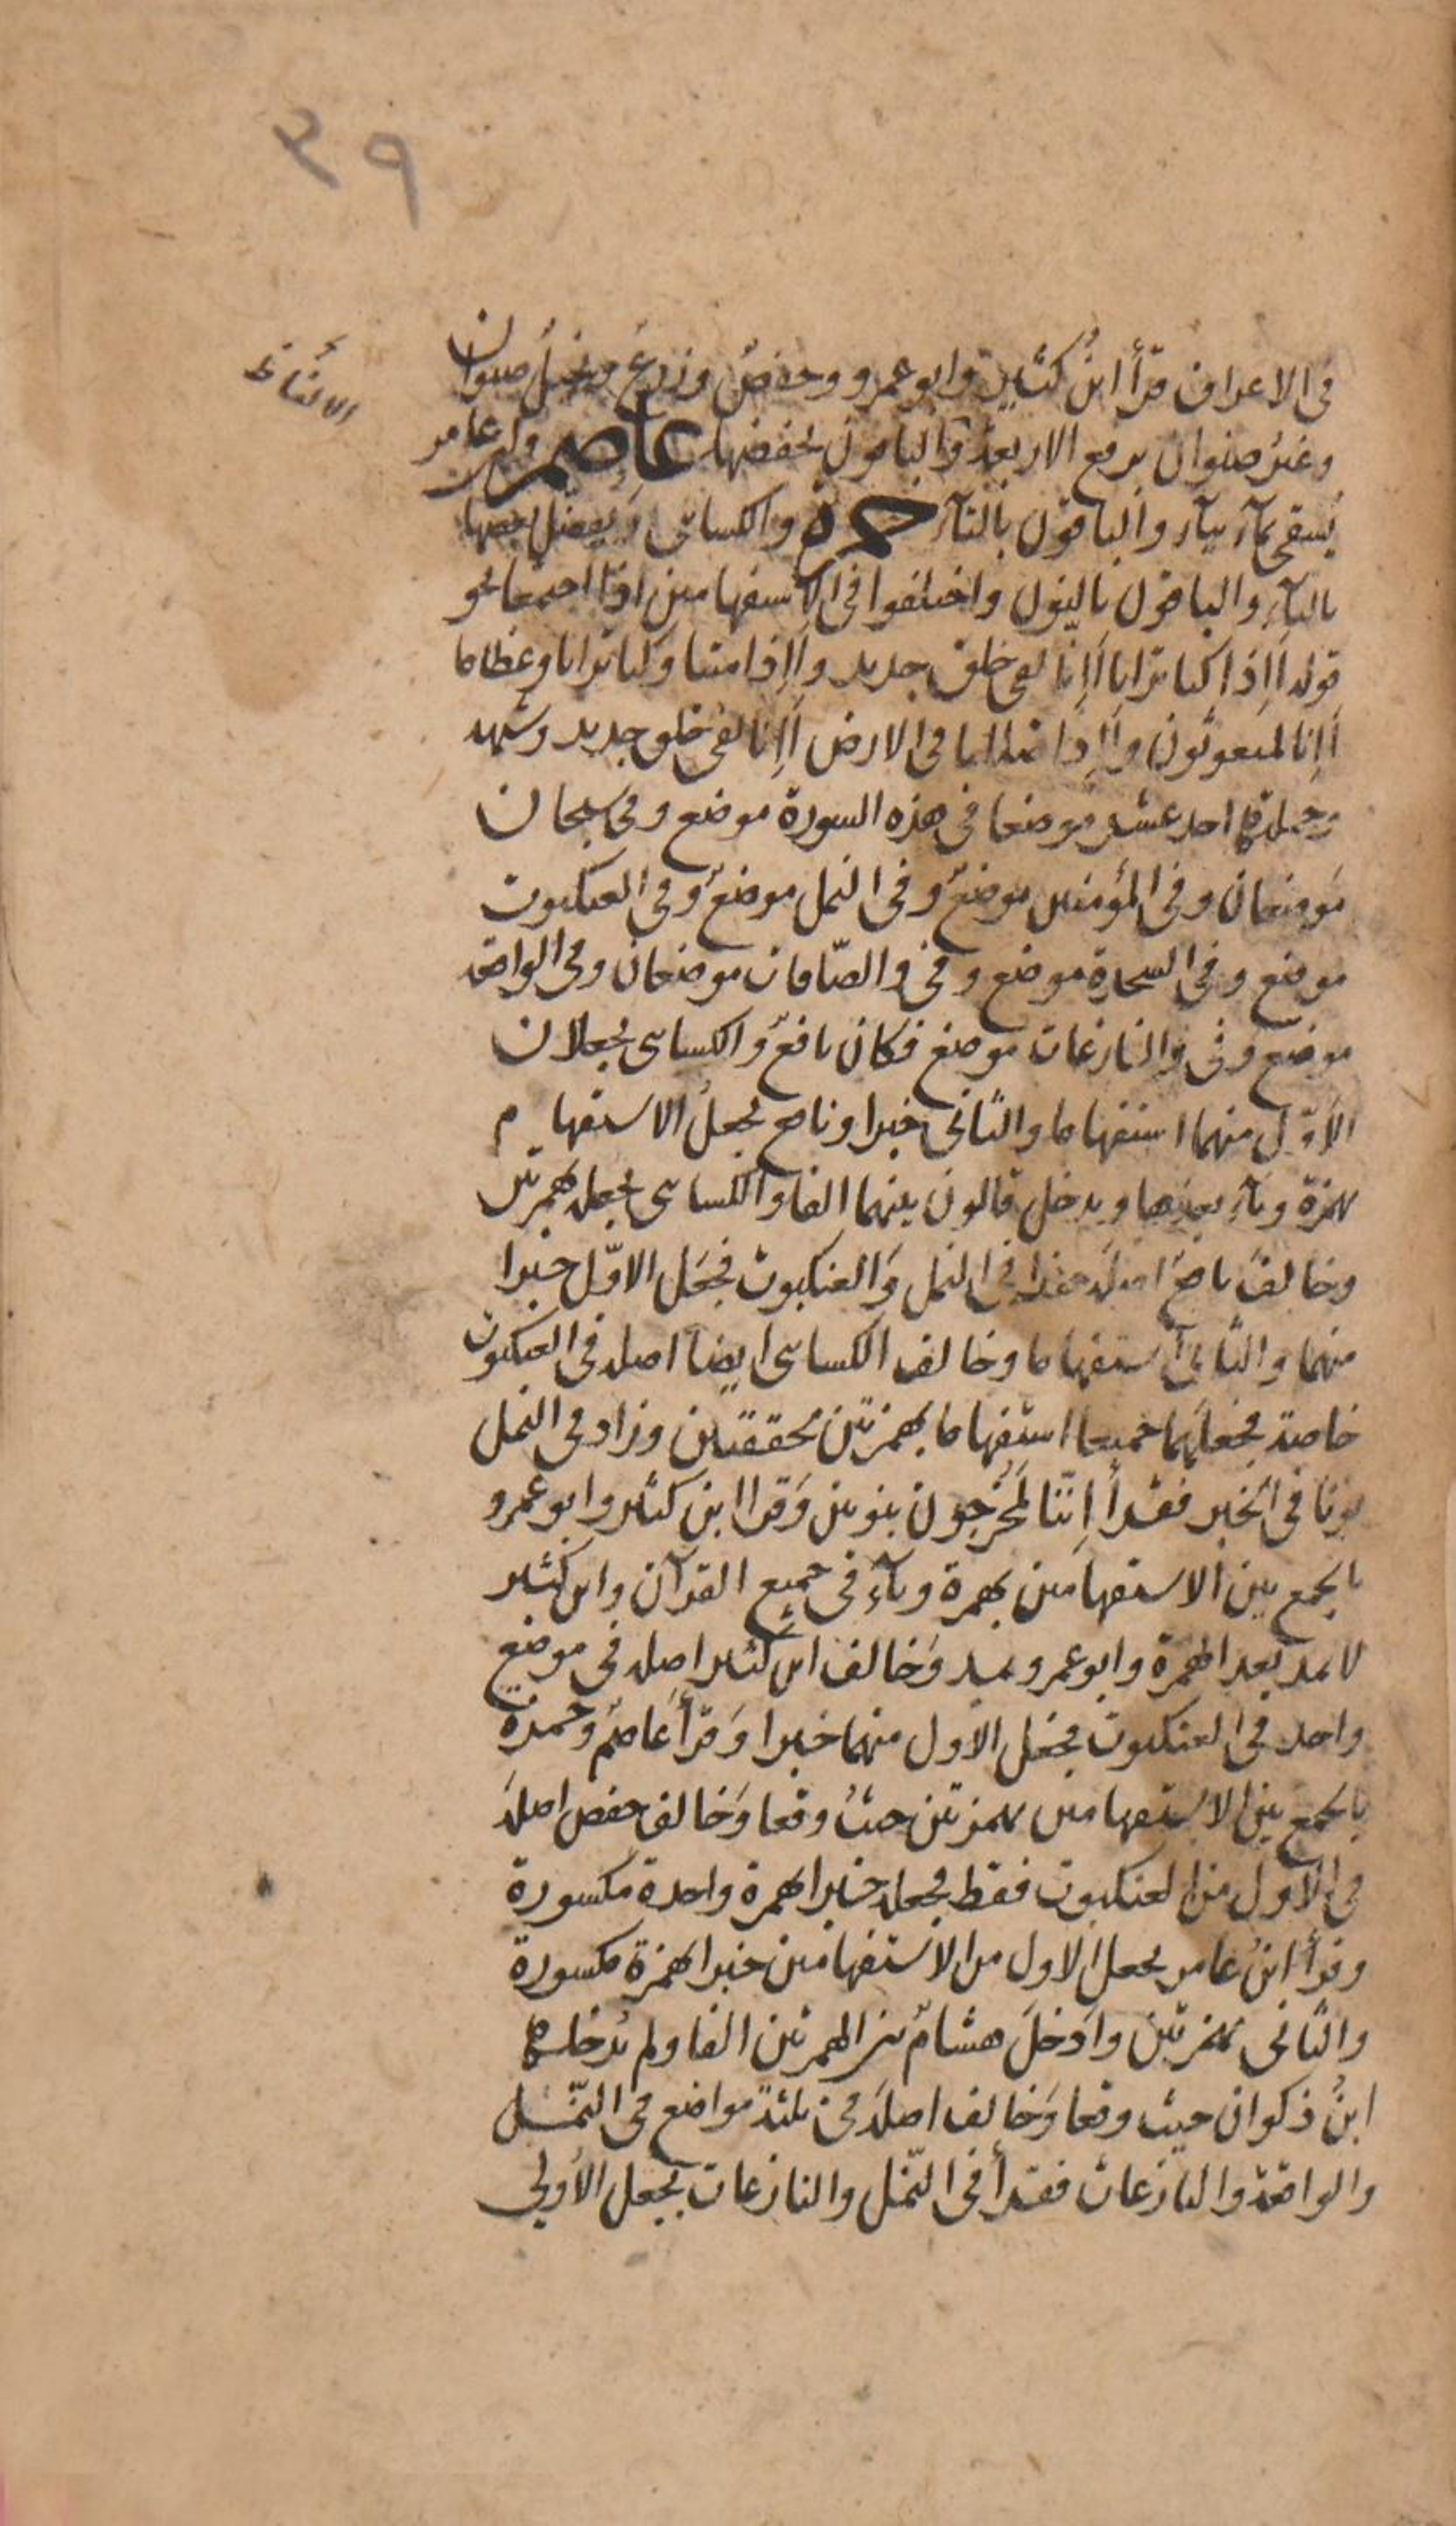 ٣٩
في الاعراف قرأ ابنُ كثير وابو عمرو وحفصٌ وزرعٌ ونخيلٌ صنوان
وغيرُ صنوان برفع الاربعة والباقون بخفضها عاصم وابن عامر
يُسقى بمآء بيآء والباقون بالتآء حمزة والكسائى ويفضّل بعضها
باليآء والباقون بالنون واختلفوا فى الاستفهامين اذا اجتمعا نحو
قوله أإذا كنا ترابا أإنا لفى خلق جديد وأإذا متنا وكنا ترابا وعظاما
أإنا لمبعوثون وأإذا ضللنا فى الارض أإنا لفى خلق جديد وشبهه
وجملة احد عشر موضعا فى هذه السورة موضع وفى سبحان
موضعان وفى المؤمنين موضعٌ وفى النمل موضعٌ وفى العنكبوت
موضع وفى السجدة موضع وفى والصّافات موضعان وفى الواقعة
موضع وفى والنازعات موضع فكان نافعٌ والكسائى يجعلان
الاوّل منهما استفهاما والثانى خبرا ونافع يجعلُ الاستفهام
بهمزة ويآء بعدها ويدخل قالون بينهما الفا والكسائى يجعله بهمزتين
وخالف نافعٌ اصله هذا فى النمل والعنكبوت فجعل الاوّل خبرا
منهما والثانى استفهاما وخالف الكسائى ايضا اصله فى العنكبوت
خاصة فجعلهما جميعا استفهاما بهمزتين محققتين وزاد فى النمل
نونا فى الخبر فقرأ اِنّنا لمُخرجون بنونين وقرا ابن كثير وابو عمرو
بالجمع بين الاستفهامين بهمزة ويآءٍ فى جميع القرآن وابن كثير
لا يمد بعد الهمزة وابو عمرو يمد وخالف ابن كثير اصله فى موضع
واحد فى العنكبوت فجعل الاول منهما خبرا وقرأ عاصمٌ وحمزة
بالجمع بين الاستفهامين بهمزتين حيثُ وقعا وخالف حفص اصله
فى الاول من العنكبوت فقط فجعله خبرا بهمزة واحدة مكسورة
وقرأ ابنُ عامر بجعل الاول من الاستفهامين خبرا بهمزة مكسورة
والثانى بهمزتين وادخلَ هشامٌ بين الهمزتين الفا ولم يُدخلها
ابنُ ذكوان حيث وقعا وخالف اصله فى ثلثة مواضع فى النّمل
والواقعة والنازعات فقرأ فى النّمل والنازعات بجعل الأولى